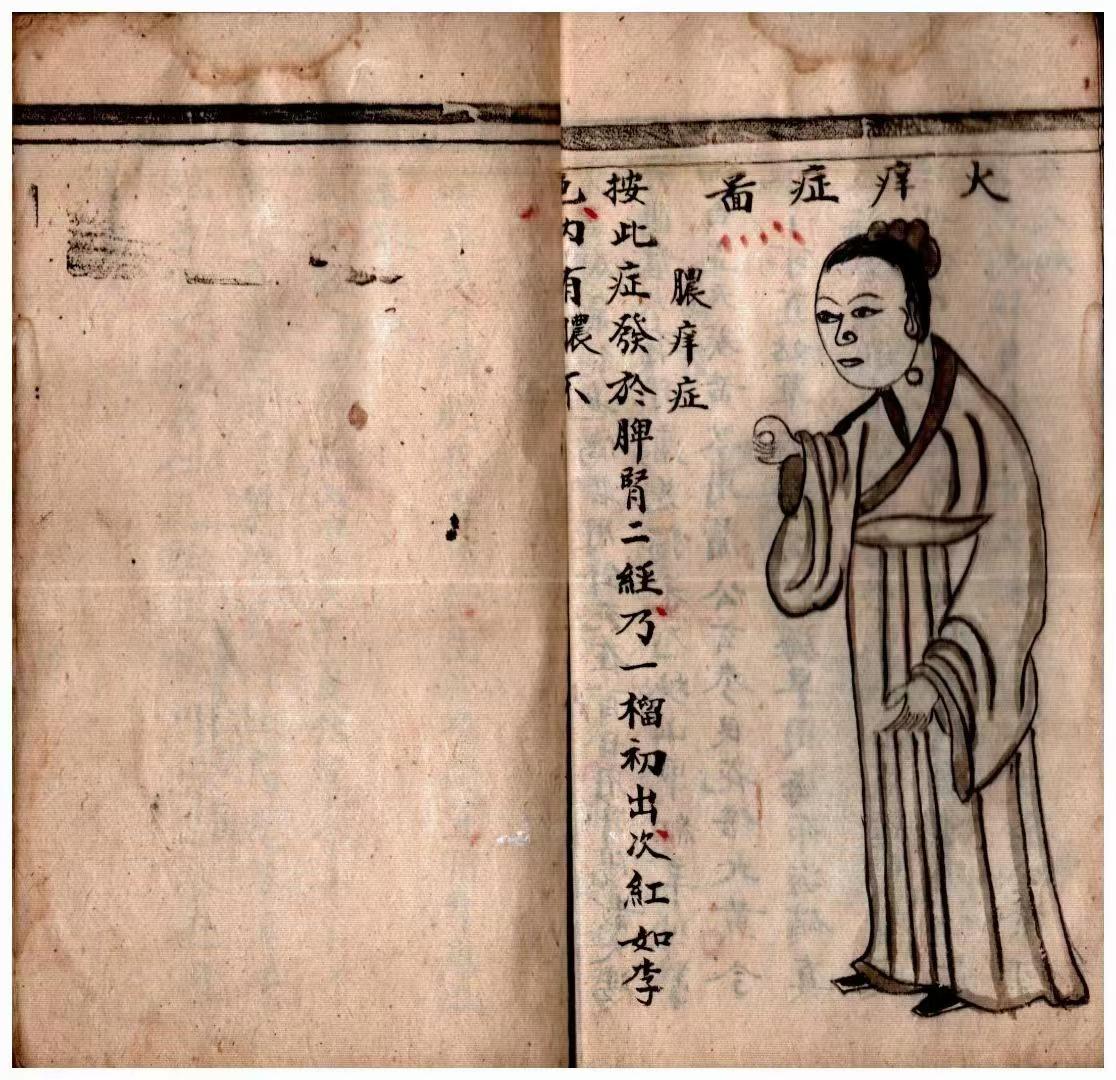 火痒症啚
膿痒症
按此症發於脾腎二經乃一榴初出次紅如李
色内有膿不